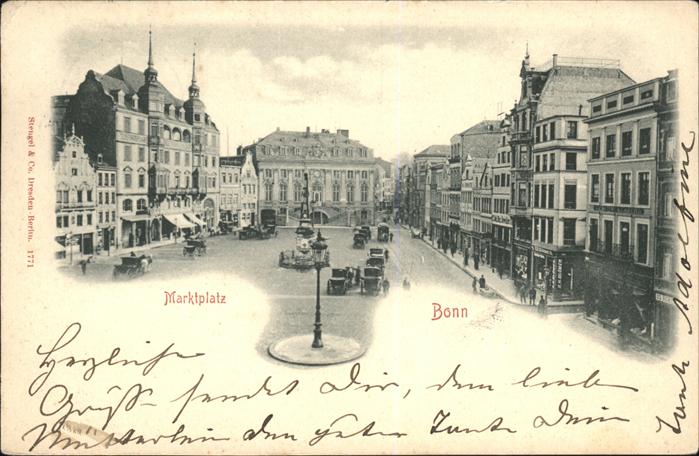 Stengel & Co., Dresden-Berlin. 1771
Marktplatz
Bonn
Herzliche
Grüße sendet Dir, dem lieben
Mütterlein den guten Tante Dein
Tante Adolfine